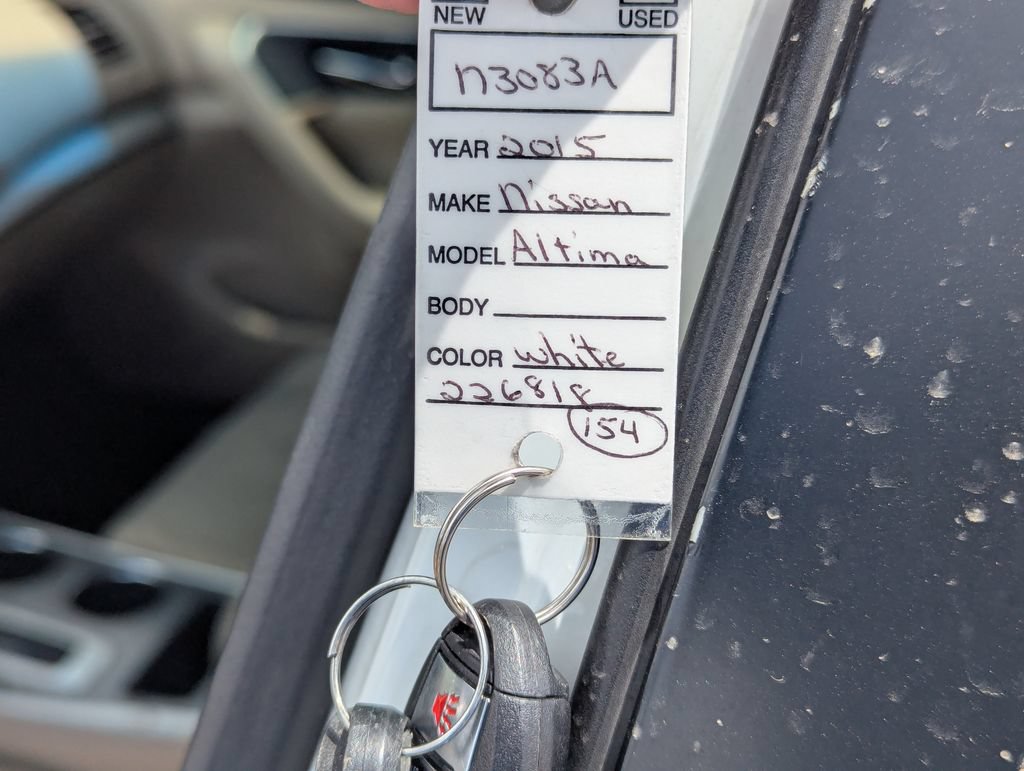 NEW USED
n3083A
YEAR 2015
MAKE Nissan
MODEL Altima
BODY
COLOR white
226818
154